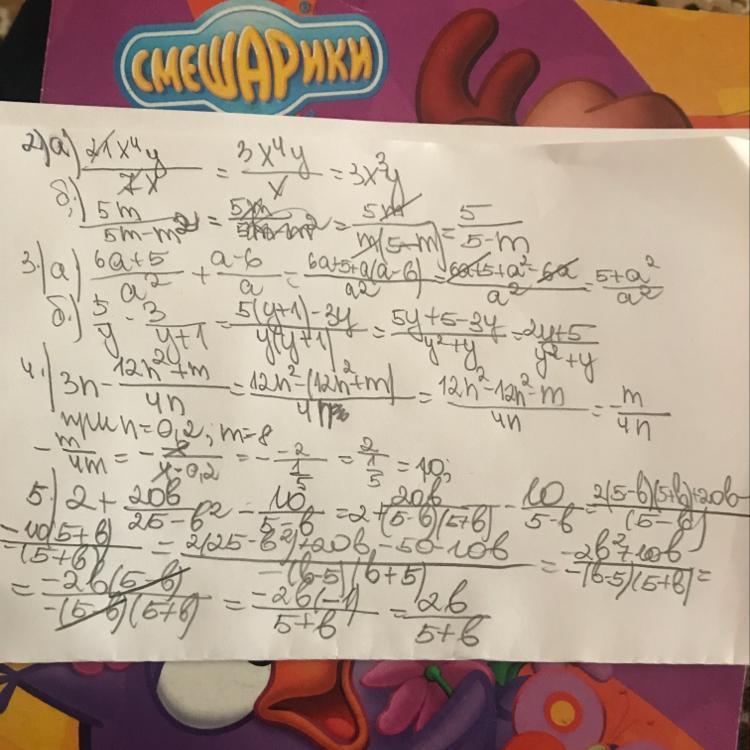 СМЕШАРИКИ
2) а) 21x⁴y / 7x = 3x⁴y / x = 3x³y
б) 5m / 5m-m² = 5m / = 5m / m(5-m) = 5 / 5-m
3.) а) 6a+5 / a² + a-6 / a = 6a+5+a(a-6) / a² = 6a+5+a²-6a / a² = 5+a² / a²
б) 5 / y - 3 / y+1 = 5(y+1)-3y / y(y+1) = 5y+5-3y / y²+y = 2y+5 / y²+y
4.) 3n - 12n²+m / 4n = 12n²-(12n²+m) / 4n = 12n²-12n²-m / 4n = -m / 4n
при n=0,2; m=8
-m / 4m = -8 / 4·0,2 = --2 / 1/5 = 2 / 1/5 = 10;
5) 2 + 20b / 25-b² - 10 / 5-b = 2 + 20b / (5-b)(5+b) - 10 / 5-b = 2(5-b)(5+b)+20b / (5-b)
-10(5+b) / -(5+b) = 2(25-b²)+20b-50-10b / -(b-5)(b+5) = -2b²+10b / -(b-5)(5+b) =
= -2b(5-b) / -(5-b)(5+b) = -2b(-1) / 5+b = 2b / 5+b